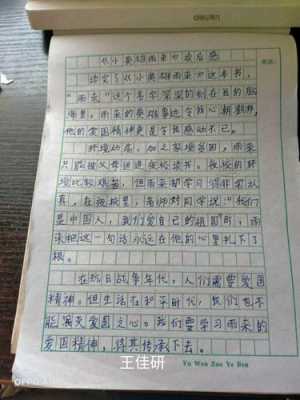 《小英雄雨来》读后感
读完了《小英雄雨来》这本书，
"雨来"这个名字深深的刻在我的脑
海里。雨来的英雄事迹令我心潮澎湃，
他的爱国精神更是令我感动不已。
环境动荡，加之家境贫困，雨来
只能被父母送进夜校读书。夜校的环
境比较艰苦，但雨来却学习得非常认
真。在夜校里，老师对同学说："我们
是中国人，我们爱自己的祖国。"雨
来把这一句话永远在他的心里扎下了
根。
在抗日战争年代，人们需要爱国
精神。但生活在和平时代，我们也不
能丧失爱国之心。我们要学习雨来的
爱国精神，将其传承下去。
王佳研
Yu Wen Zuo Ye Ben